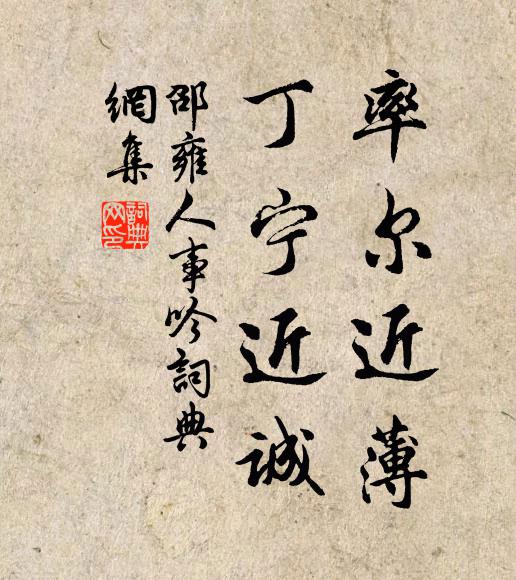 率尔近薄
丁宁近诚
邵雍人事吟詞典
網集
詞典网印